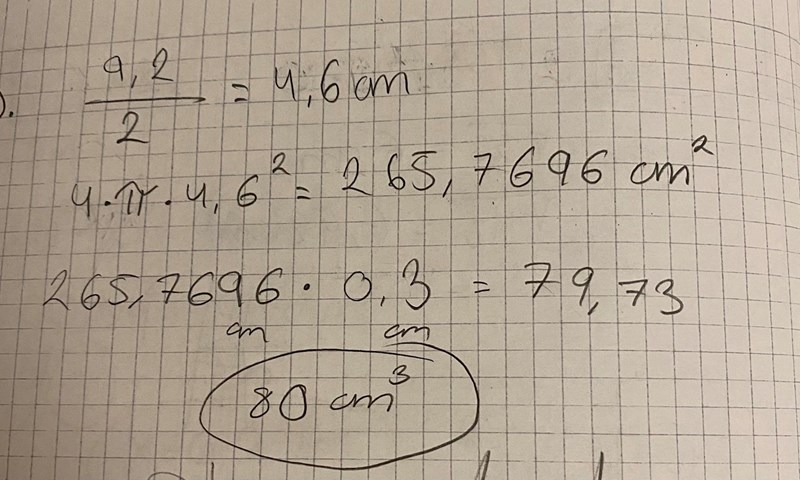 ).
9,2 / 2 = 4,6 cm
4·π·4,6² = 265,7696 cm²
265,7696 · 0,3 = 79,73
cm cm
80 cm³